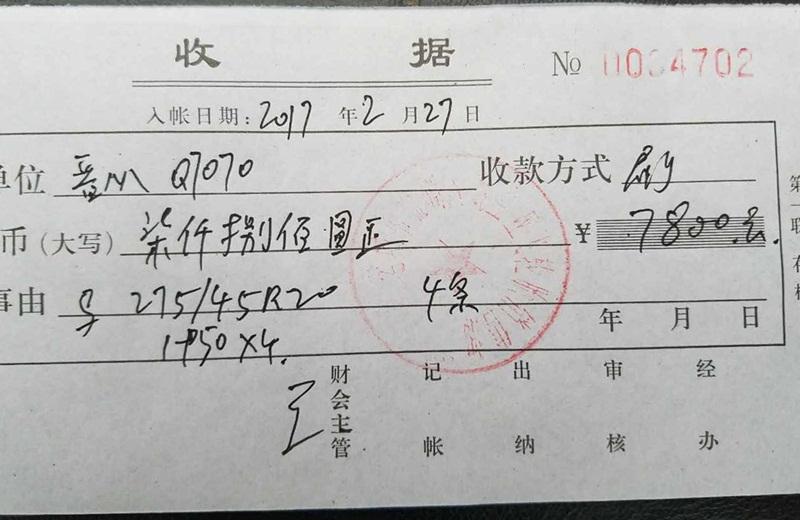 收 据 № 0034702
入帐日期: 2017 年 2 月 27 日
单位 晋M Q7070 收款方式 刷
币(大写) 柒仟捌佰圆正 ¥ 7800.元.
事由 275/45R20 4条
年 月 日
1950×4.
财会主管 记帐 出纳 审核 经办
第一联